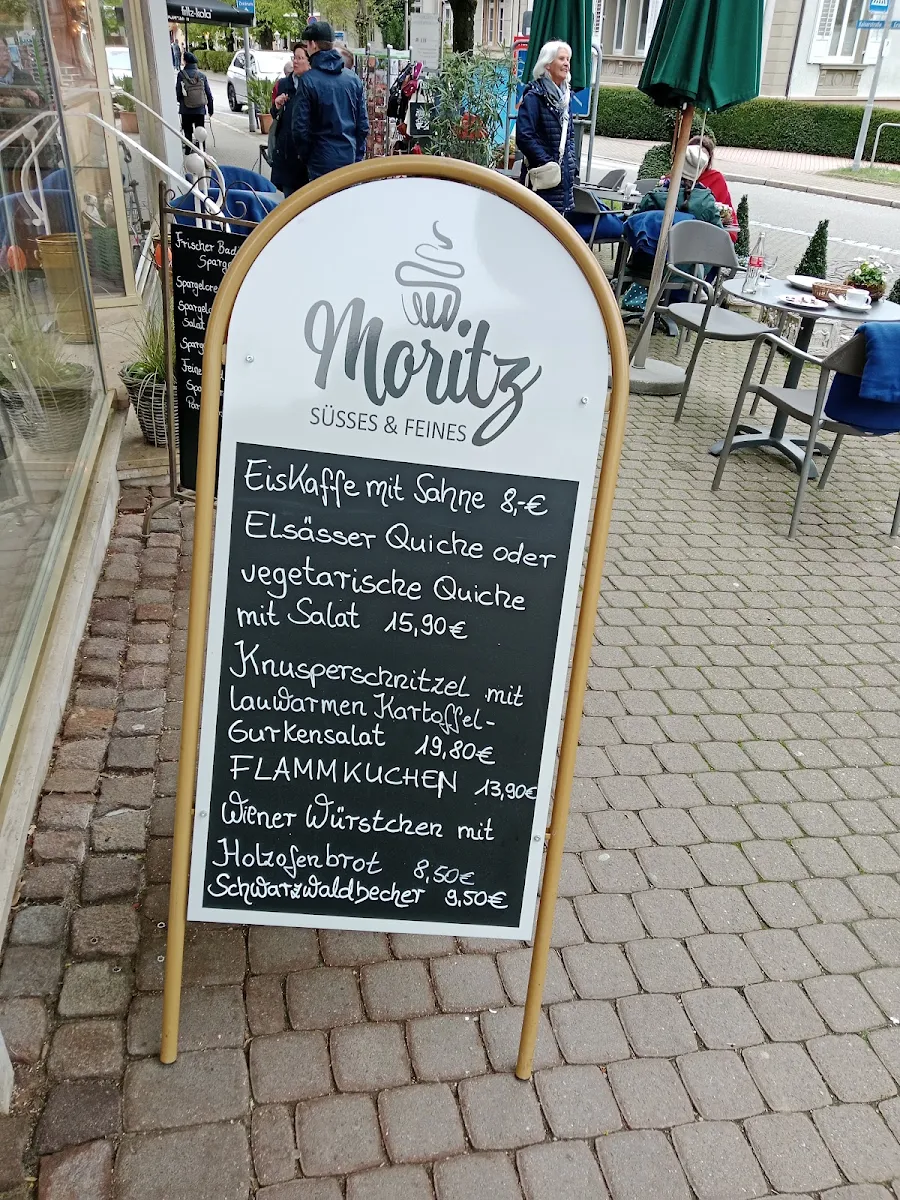 fritz-kola
Moritz
SÜSSES & FEINES
Eiskaffe mit Sahne 8,-€
Elsässer Quiche oder
vegetarische Quiche
mit Salat 15,90€
Knusperschnitzel mit
lauwarmen Kartoffel-
Gurkensalat 19,80€
FLAMMKUCHEN 13,90€
Wiener Würstchen mit
Holzofenbrot 8,50€
Schwarzwaldbecher 9,50€
Frischer
Salat